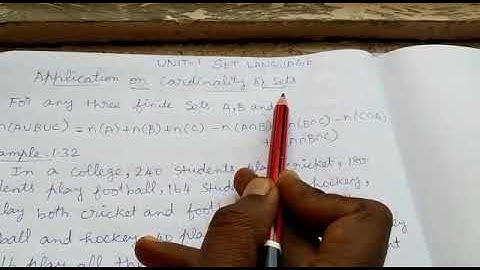 UNIT-1 SET LANGUAGE
Application on Cardinality of Sets
For any three finite sets A,B and
n(AUBUC) = n(A)+n(B)+n(C) -n(A∩B) n(B∩C) -n(C∩A)
+ n(A∩B∩C)
ample 1.32
In a college, 240 students play cricket, 180
dents play football, 164 stud hockey,
lay both cricket and foot
ball and hockey 40 pla hockey
play all th